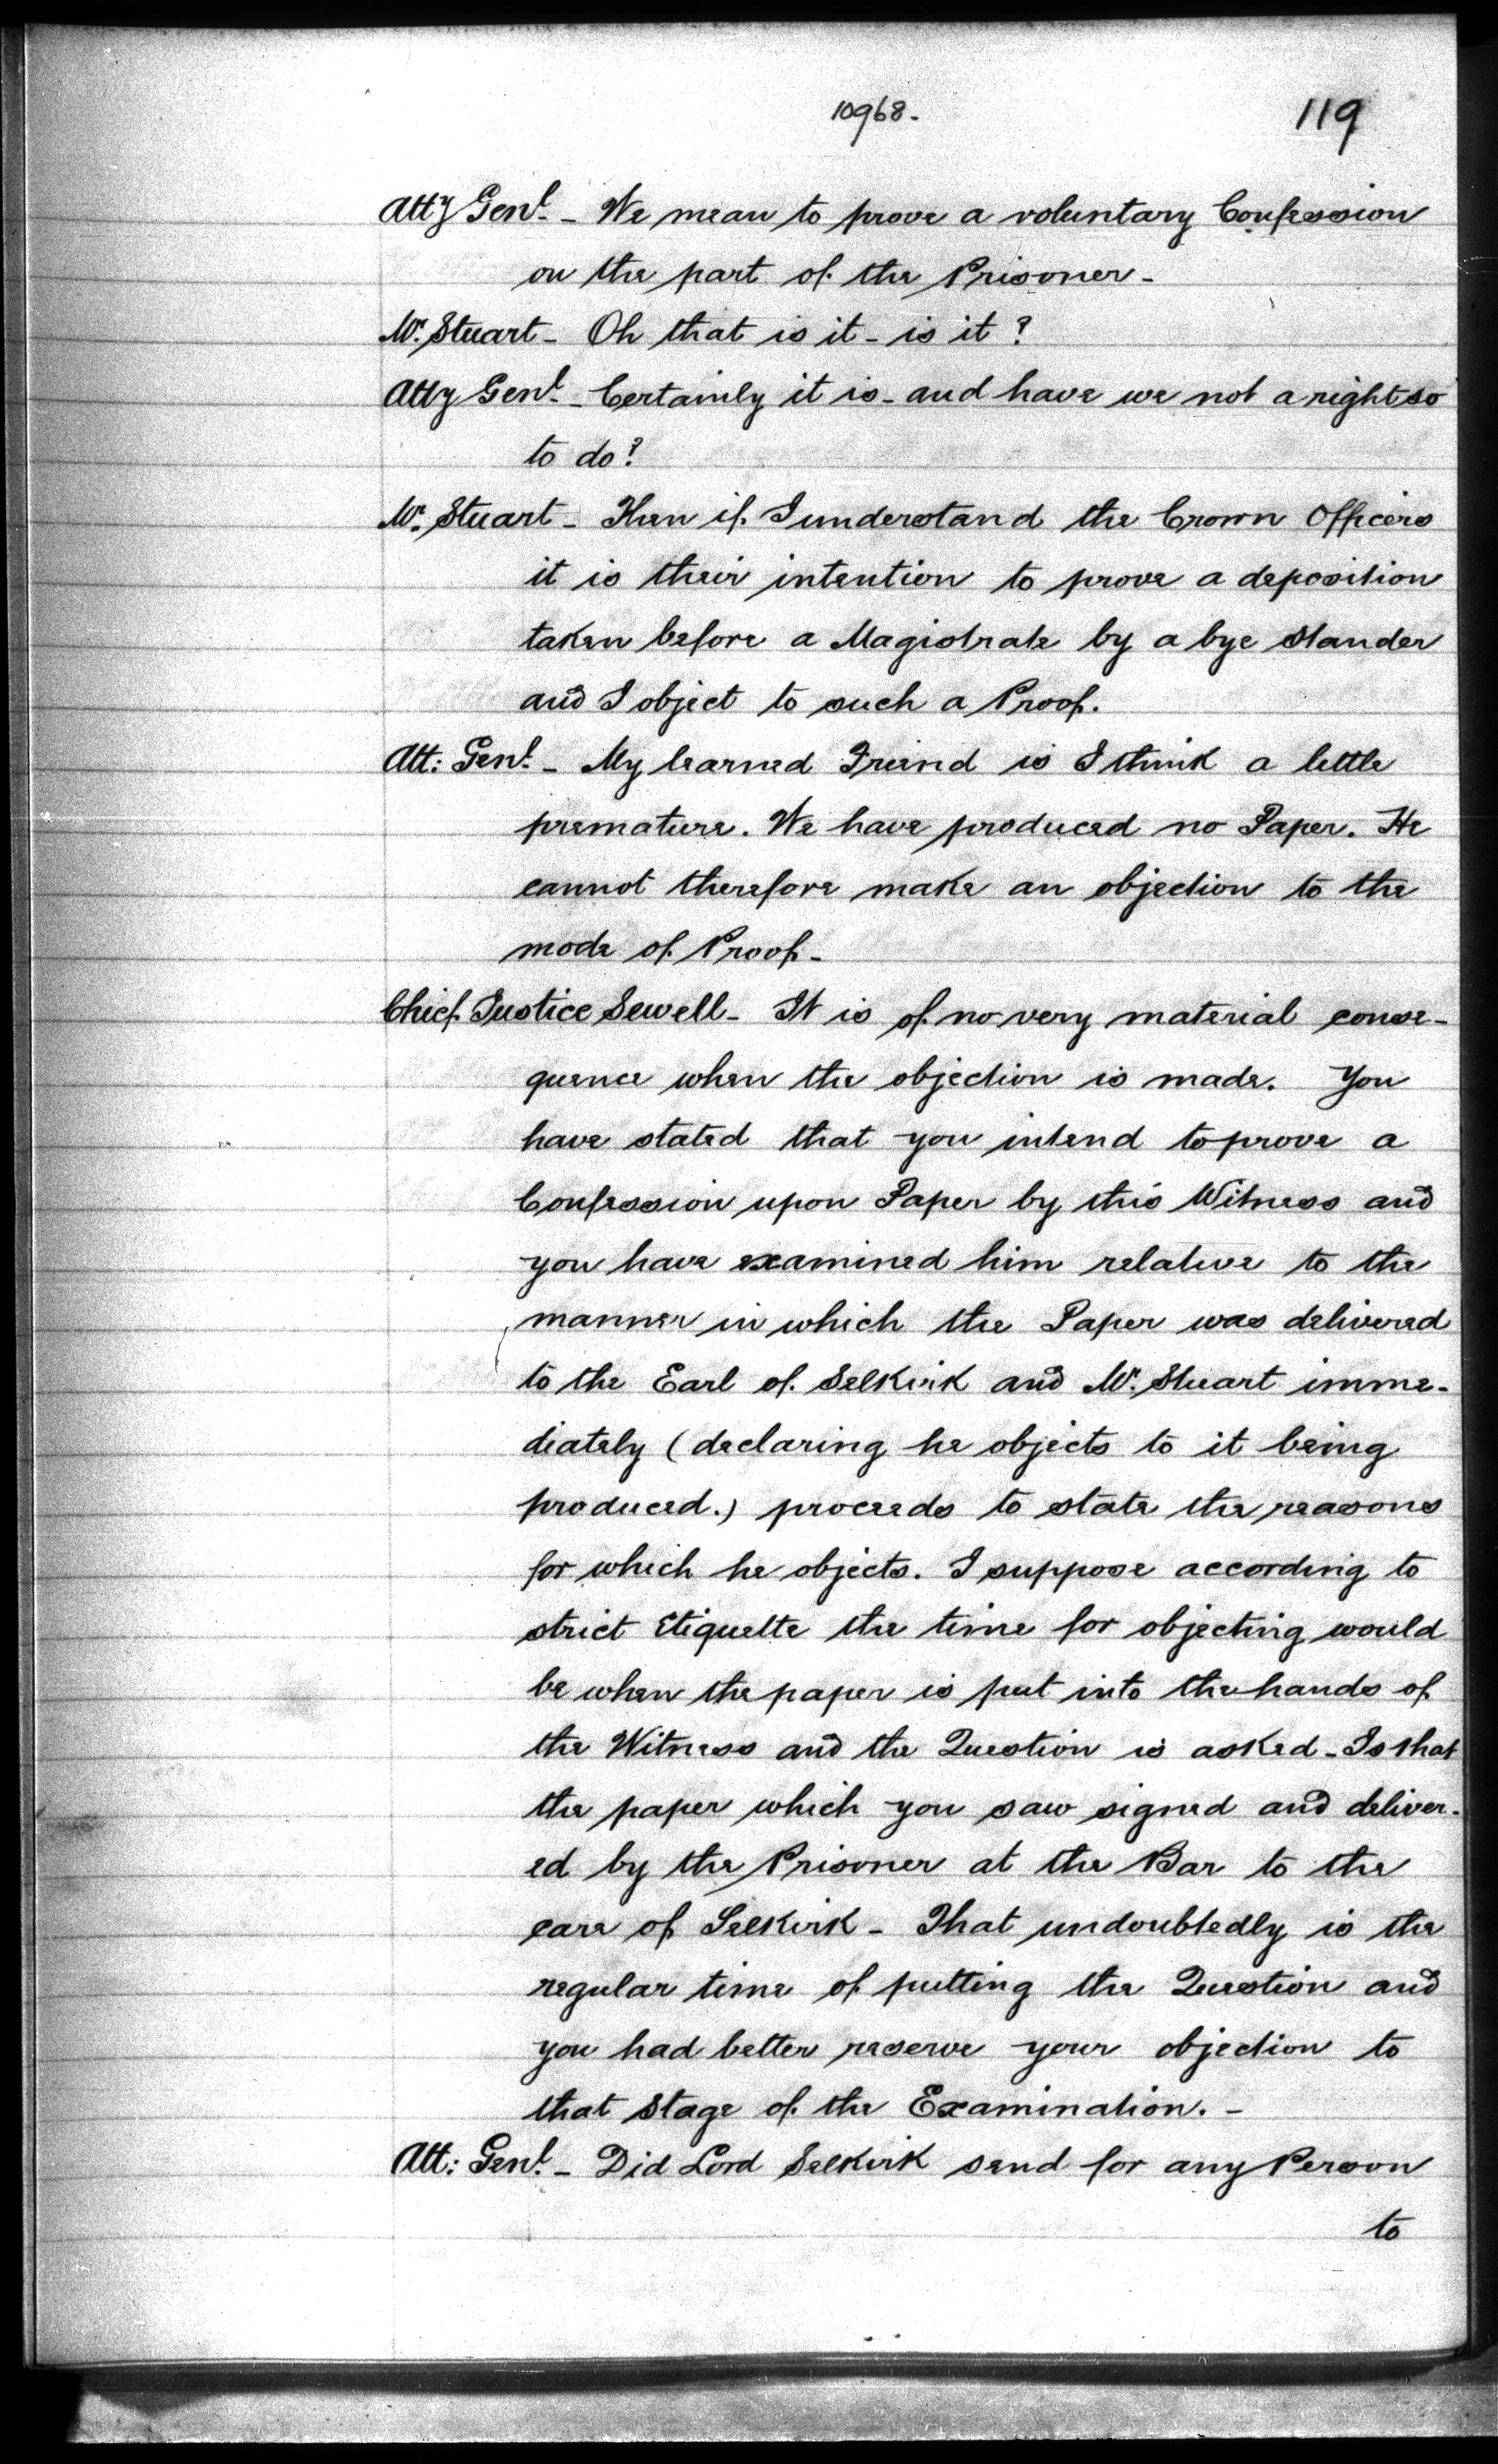 10968.
119
Atty Genl. - We mean to prove a voluntary Confession
on the part of the Prisoner -
Mr. Stuart - Oh that is it - is it?
Atty Genl. - Certainly it is - and have we not a right so
to do?
Mr. Stuart - Then if I understand the Crown Officers
it is their intention to prove a deposition
taken before a Magistrate by a bye stander
and I object to such a Proof.
Att: Genl. - My learned Friend is I think a little
premature. We have produced no Paper. He
cannot therefore make an objection to the
mode of Proof -
Chief Justice Sewell - It is of no very material conse-
quence when the objection is made. You
have stated that you intend to prove a
Confession upon Paper by this Witness and
you have examined him relative to the
manner in which the Paper was delivered
to the Earl of Selkirk and Mr. Stuart imme-
diately (declaring he objects to it being
produced.) proceeds to state the reasons
for which he objects. I suppose according to
strict Etiquette the time for objecting would
be when the paper is put into the hands of
the Witness and the Question is asked - Is that
the paper which you saw signed and deliver-
ed by the Prisoner at the Bar to the
eare of Selkirk - That undoubtedly is the
regular time of putting the Question and
you had better reserve your objection to
that Stage of the Examination. -
Att: Genl. - Did Lord Selkirk send for any Person
to